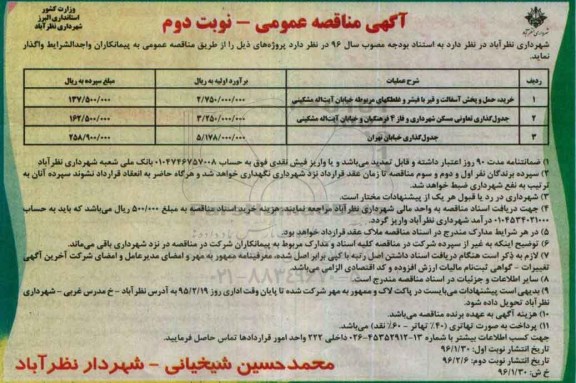 وزارت کشور
استانداری البرز
شهرداری نظرآباد
آگهی مناقصه عمومی - نوبت دوم
شهرداری نظرآباد در نظر دارد به استناد بودجه مصوب سال ۹۶ در نظر دارد پروژه‌های ذیل را از طریق مناقصه عمومی به پیمانکاران واجدالشرایط واگذار
نماید.
ردیف شرح عملیات برآورد اولیه به ریال مبلغ سپرده به ریال
۱ خرید، حمل و پخش آسفالت و قیر با فینشر و غلطکهای مربوطه خیابان آیت‌اله مشکینی ۲/۷۵۰/۰۰۰/۰۰۰ ۱۳۷/۵۰۰/۰۰۰
۲ جدول‌گذاری تعاونی مسکن شهرداری و فاز ۴ فرهنگیان و خیابان آیت‌اله مشکینی ۳/۲۵۰/۰۰۰/۰۰۰ ۱۶۲/۵۰۰/۰۰۰
۳ جدول‌گذاری خیابان تهران ۵/۱۷۸/۰۰۰/۰۰۰ ۲۵۸/۹۰۰/۰۰۰
۱) ضمانتنامه مدت ۹۰ روز اعتبار داشته و قابل تمدید می‌باشد و یا واریز فیش نقدی فوق به حساب ۰۱۰۴۷۴۶۷۵۷۰۰۸ بانک ملی شعبه شهرداری نظرآباد
۲) سپرده برندگان نفر اول و دوم و سوم مناقصه تا زمان عقد قرارداد نزد شهرداری نگهداری خواهد شد و هرگاه حاضر به انعقاد قرارداد نشوند سپرده آنان به
ترتیب به نفع شهرداری ضبط خواهد شد.
۳) شهرداری در رد یا قبول هر یک از پیشنهادات مختار است.
۴) جهت دریافت اسناد مناقصه به واحد مالی شهرداری نظرآباد مراجعه نمایند. هزینه خرید اسناد مناقصه به مبلغ ۵۰۰/۰۰۰ ریال می‌باشد که باید به حساب
۰۱۰۴۵۳۴۰۲۱۰۰۰ درآمد شهرداری نظرآباد واریز گردد.
۵) در هر شرایط مدارک مندرج در اسناد مناقصه ملاک عقد قرارداد خواهد بود.
۶) توضیح اینکه به غیر از سپرده شرکت در مناقصه کلیه اسناد و مدارک مربوط به پیمانکاران شرکت در مناقصه در نزد شهرداری باقی می‌ماند.
۷) لازم به ذکر است هنگام دریافت اسناد داشتن اصل رتبه با کپی برابر اصل شده، معرفینامه ممهور به مهر و امضای مدیرعامل و امضای شرکت آخرین آگهی
تغییرات - گواهی ثبت‌نام مالیات ارزش افزوده و کد اقتصادی الزامی می‌باشد.
۸) سایر اطلاعات و جزئیات در اسناد مناقصه مندرج است.
۹) بدیهی است پیشنهادات می‌بایست در پاکت لاک و ممهور به مهر شرکت شده تا پایان وقت اداری روز ۹۵/۲/۱۹ به آدرس نظرآباد - خ مدرس غربی - شهرداری
نظرآباد تحویل داده شود.
۱۰) هزینه آگهی به عهده برنده مناقصه می‌باشد.
۱۱) پرداخت به صورت تهاتری (۴۰٪ تهاتر - ۶۰٪ نقد) می‌باشد.
جهت کسب اطلاعات بیشتر با شماره ۱۳-۴۵۳۵۲۹۱۲-۰۲۶ داخلی ۲۲۲ واحد امور قراردادها تماس حاصل فرمایید.
تاریخ انتشار نوبت اول: ۹۶/۱/۳۰
تاریخ انتشار نوبت دوم: ۹۶/۲/۶
خ ش: ۹۶/۱/۳۰
محمدحسین شیخیانی - شهردار نظرآباد